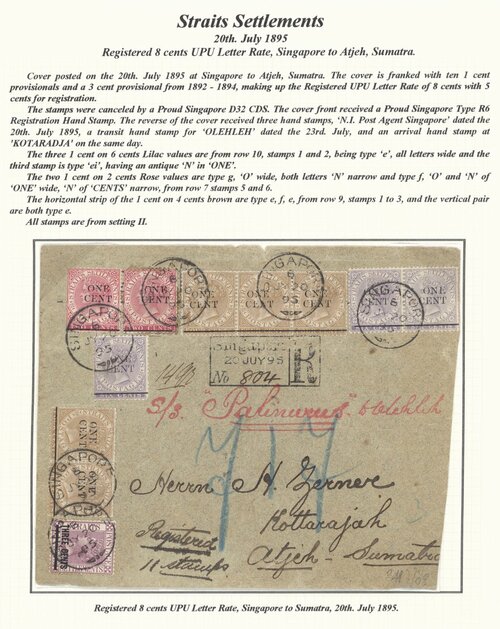 Straits Settlements
20th. July 1895
Registered 8 cents UPU Letter Rate, Singapore to Atjeh, Sumatra.
Cover posted on the 20th. July 1895 at Singapore to Atjeh, Sumatra. The cover is franked with ten 1 cent
provisionals and a 3 cent provisional from 1892 - 1894, making up the Registered UPU Letter Rate of 8 cents with 5
cents for registration.
The stamps were canceled by a Proud Singapore D32 CDS. The cover front received a Proud Singapore Type R6
Registration Hand Stamp. The reverse of the cover received three hand stamps, 'N.I. Post Agent Singapore' dated the
20th. July 1895, a transit hand stamp for 'OLEHLEH' dated the 23rd. July, and an arrival hand stamp at
'KOTARADJA' on the same day.
The three 1 cent on 6 cents Lilac values are from row 10, stamps 1 and 2, being type 'e', all letters wide and the
third stamp is type 'ei', having an antique 'N' in 'ONE'.
The two 1 cent on 2 cents Rose values are type g, 'O' wide, both letters 'N' narrow and type f, 'O' and 'N' of
'ONE' wide, 'N' of 'CENTS' narrow, from row 7 stamps 5 and 6.
The horizontal strip of the 1 cent on 4 cents brown are type e, f, e, from row 9, stamps 1 to 3, and the vertical pair
are both type e.
All stamps are from setting II.
ONE CENT
ONE CENT
ONE CENT
ONE CENT
ONE CENT
ONE CENT
ONE CENT
TWO CENTS
SINGAPORE
SINGAPORE
SINGAPORE
SINGAPORE
ONE CENT
Singapore
20 JUY 95
R
No 804
S/S. "Palinurus" Olehleh
717
ONE CENT
ONE CENT
SINGAPORE
THREE CENTS
Herrn H Zerner
Kottarajah
Atjeh - Sumatra
Registered
11 stamps
Registered 8 cents UPU Letter Rate, Singapore to Sumatra, 20th. July 1895.